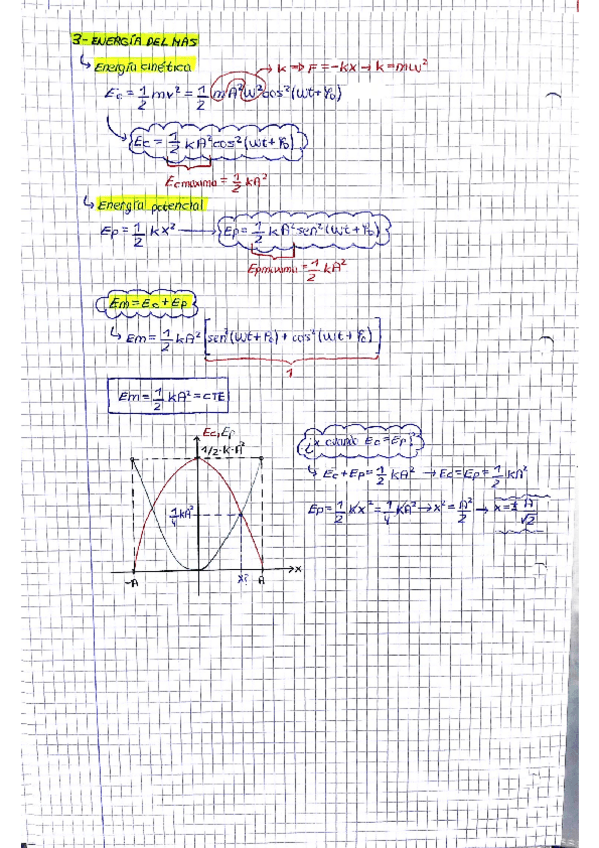 3- ENERGÍA DEL MAS
↳ Energía cinética → K ⇒ F = -Kx → K = mω²
Ec = 1/2 mv² = 1/2 mA²ω²cos²(ωt+φ₀)
Ec = 1/2 KA²cos²(ωt+φ₀)
Ec máxima = 1/2 KA²
↳ Energía potencial
Ep = 1/2 Kx² → Ep = 1/2 KA²sen²(ωt+φ₀)
Ep máxima = 1/2 KA²
Em = Ec + Ep
↳ Em = 1/2 KA² [sen²(ωt+φ₀) + cos²(ωt+φ₀)]
1
Em = 1/2 KA² = CTE
Ec, Ep
1/2·K·A²
1/4 KA²
-A x? A x
¿x cuando Ec = Ep?
↳ Ec + Ep = 1/2 KA² → Ec = Ep = 1/2 KA²
Ep = 1/2 Kx² = 1/4 KA² → x² = A²/2 → x = ± A/√2